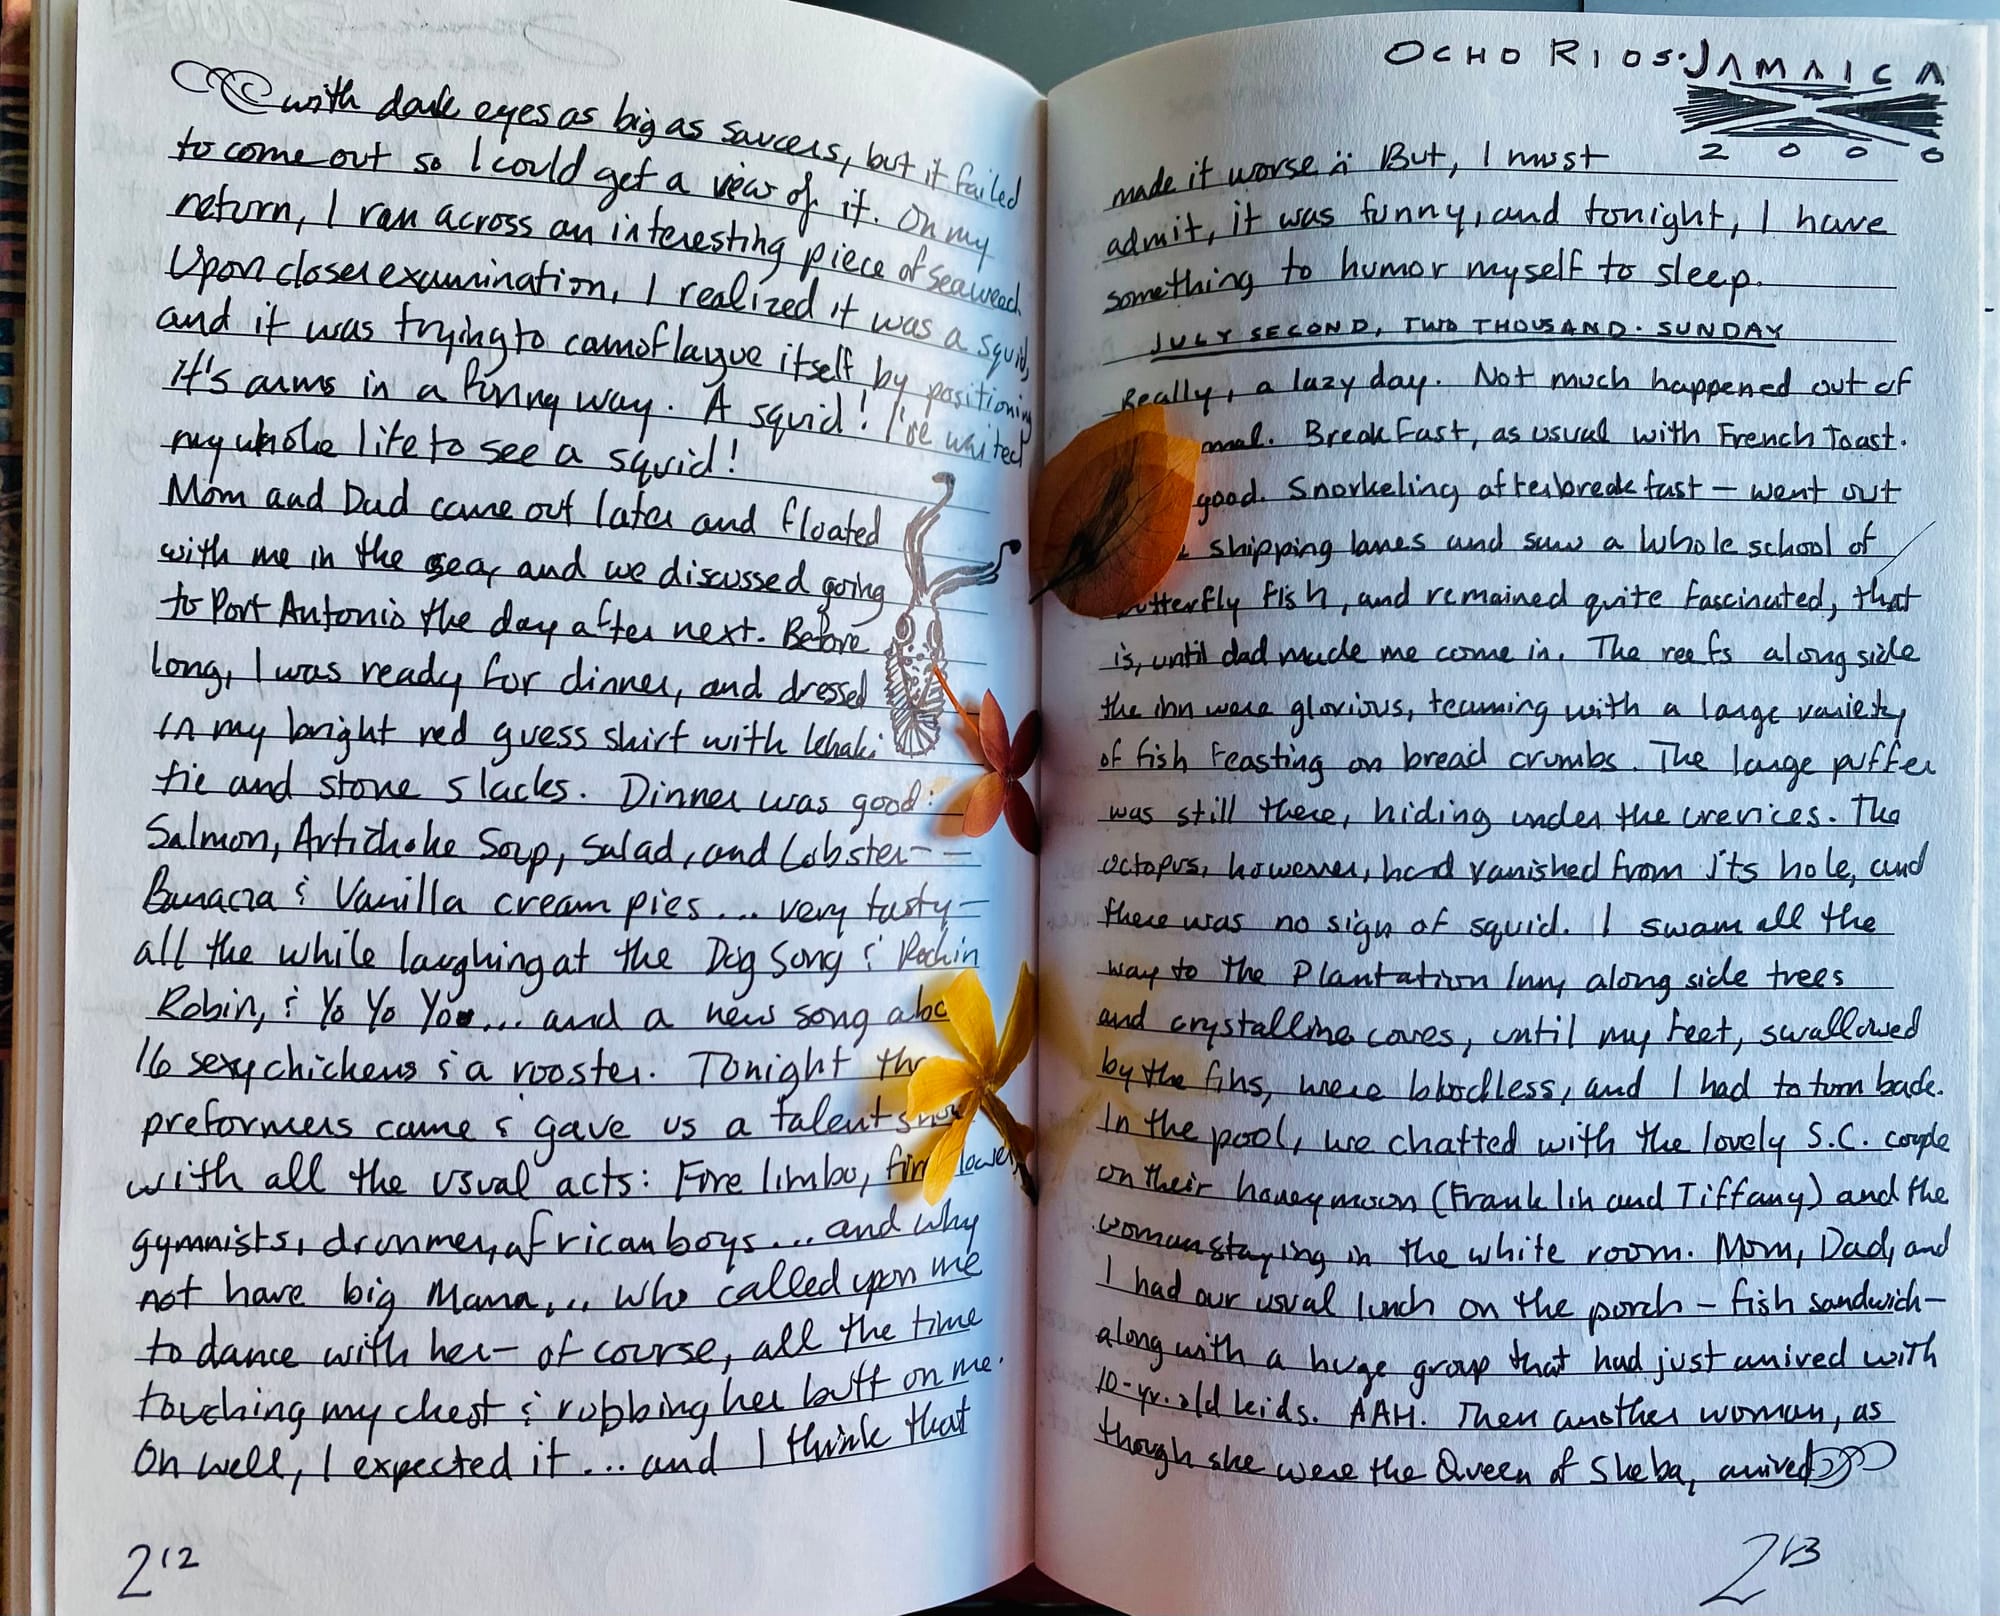 with dark eyes as big as saucers, but it failed
to come out so I could get a view of it. On my
return, I ran across an interesting piece of seaweed.
Upon closer examination, I realized it was a squid,
and it was trying to camoflague itself by positioning
it's arms in a funny way. A squid! I've waited
my whole life to see a squid!
Mom and Dad came out later and floated
with me in the sea, and we discussed going
to Port Antonio the day after next. Before
long, I was ready for dinner, and dressed
in my bright red guess shirt with khaki
tie and stone slacks. Dinner was good:
Salmon, Artichoke Soup, Salad, and Lobster—
Banana & Vanilla cream pies... very tasty—
all the while laughing at the Dog Song & Rockin
Robin, & Yo Yo Yo... and a new song abo
16 sexy chickens & a rooster. Tonight the
preformers came & gave us a talent show
with all the usual acts: Fire limbo,
gymnists, drummer, african boys... and why
not have big Mama... who called upon me
to dance with her— of course, all the time
touching my chest & rubbing her butt on me.
Oh well, I expected it... and I think that
212
OCHO RIOS · JAMAICA
2000
made it worse But, I must
admit, it was funny, and tonight, I have
something to humor myself to sleep.
JULY SECOND, TWO THOUSAND · SUNDAY
Really, a lazy day. Not much happened out of
Breakfast, as usual with French Toast.
good. Snorkeling after breakfast — went out
shipping lanes and saw a whole school of
butterfly fish, and remained quite fascinated, that
is, until dad made me come in. The reefs along side
the inn were glorious, teaming with a large variety
of fish feasting on bread crumbs. The large puffer
was still there, hiding under the crevices. The
octopus, however, had vanished from it's hole, and
there was no sign of squid. I swam all the
way to the Plantation Inn, along side trees
and crystalline coves, until my feet, swallowed
by the fins, were bloodless, and I had to turn back.
In the pool, we chatted with the lovely S.C. couple
on their honeymoon (Franklin and Tiffany) and the
woman staying in the white room. Mom, Dad, and
I had our usual lunch on the porch — fish sandwich —
along with a huge group that had just arrived with
10-yr. old kids. AAH. Then another woman, as
though she were the Queen of Sheba, arrived
213